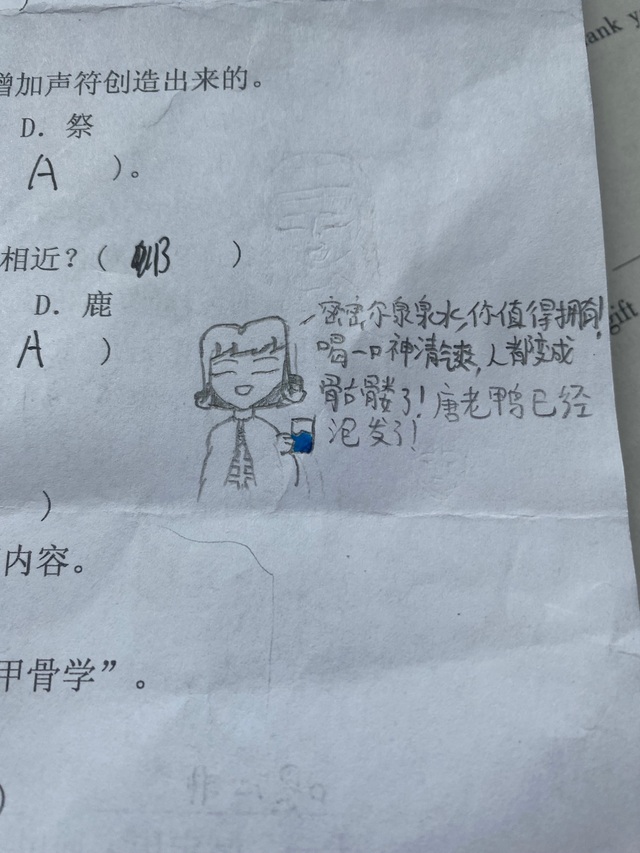 ank y
增加声符创造出来的。
D. 祭
A )。
相近？( B )
D. 鹿
gift
A )
密密尔泉泉水,你值得拥有!
喝一口神清气爽,人都变成
骷髅了!唐老鸭已经
泡发了!
)
内容。
甲骨学”。
)